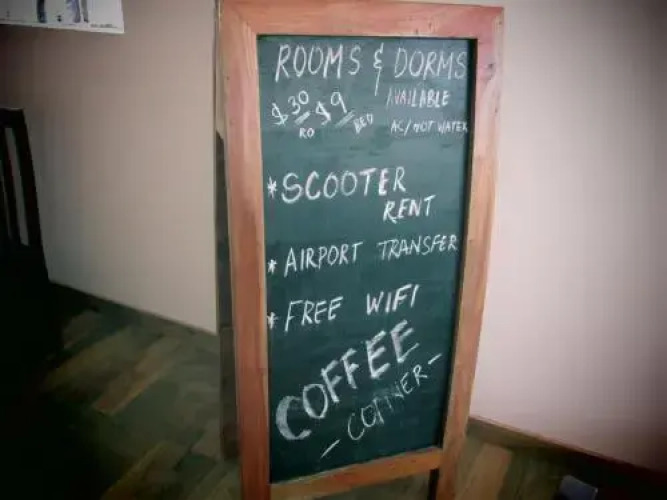 ROOMS & DORMS
$30 $9 AVAILABLE
RO BED AC/HOT WATER
*SCOOTER
RENT
*AIRPORT TRANSFER
*FREE WIFI
COFFEE
-CORNER-